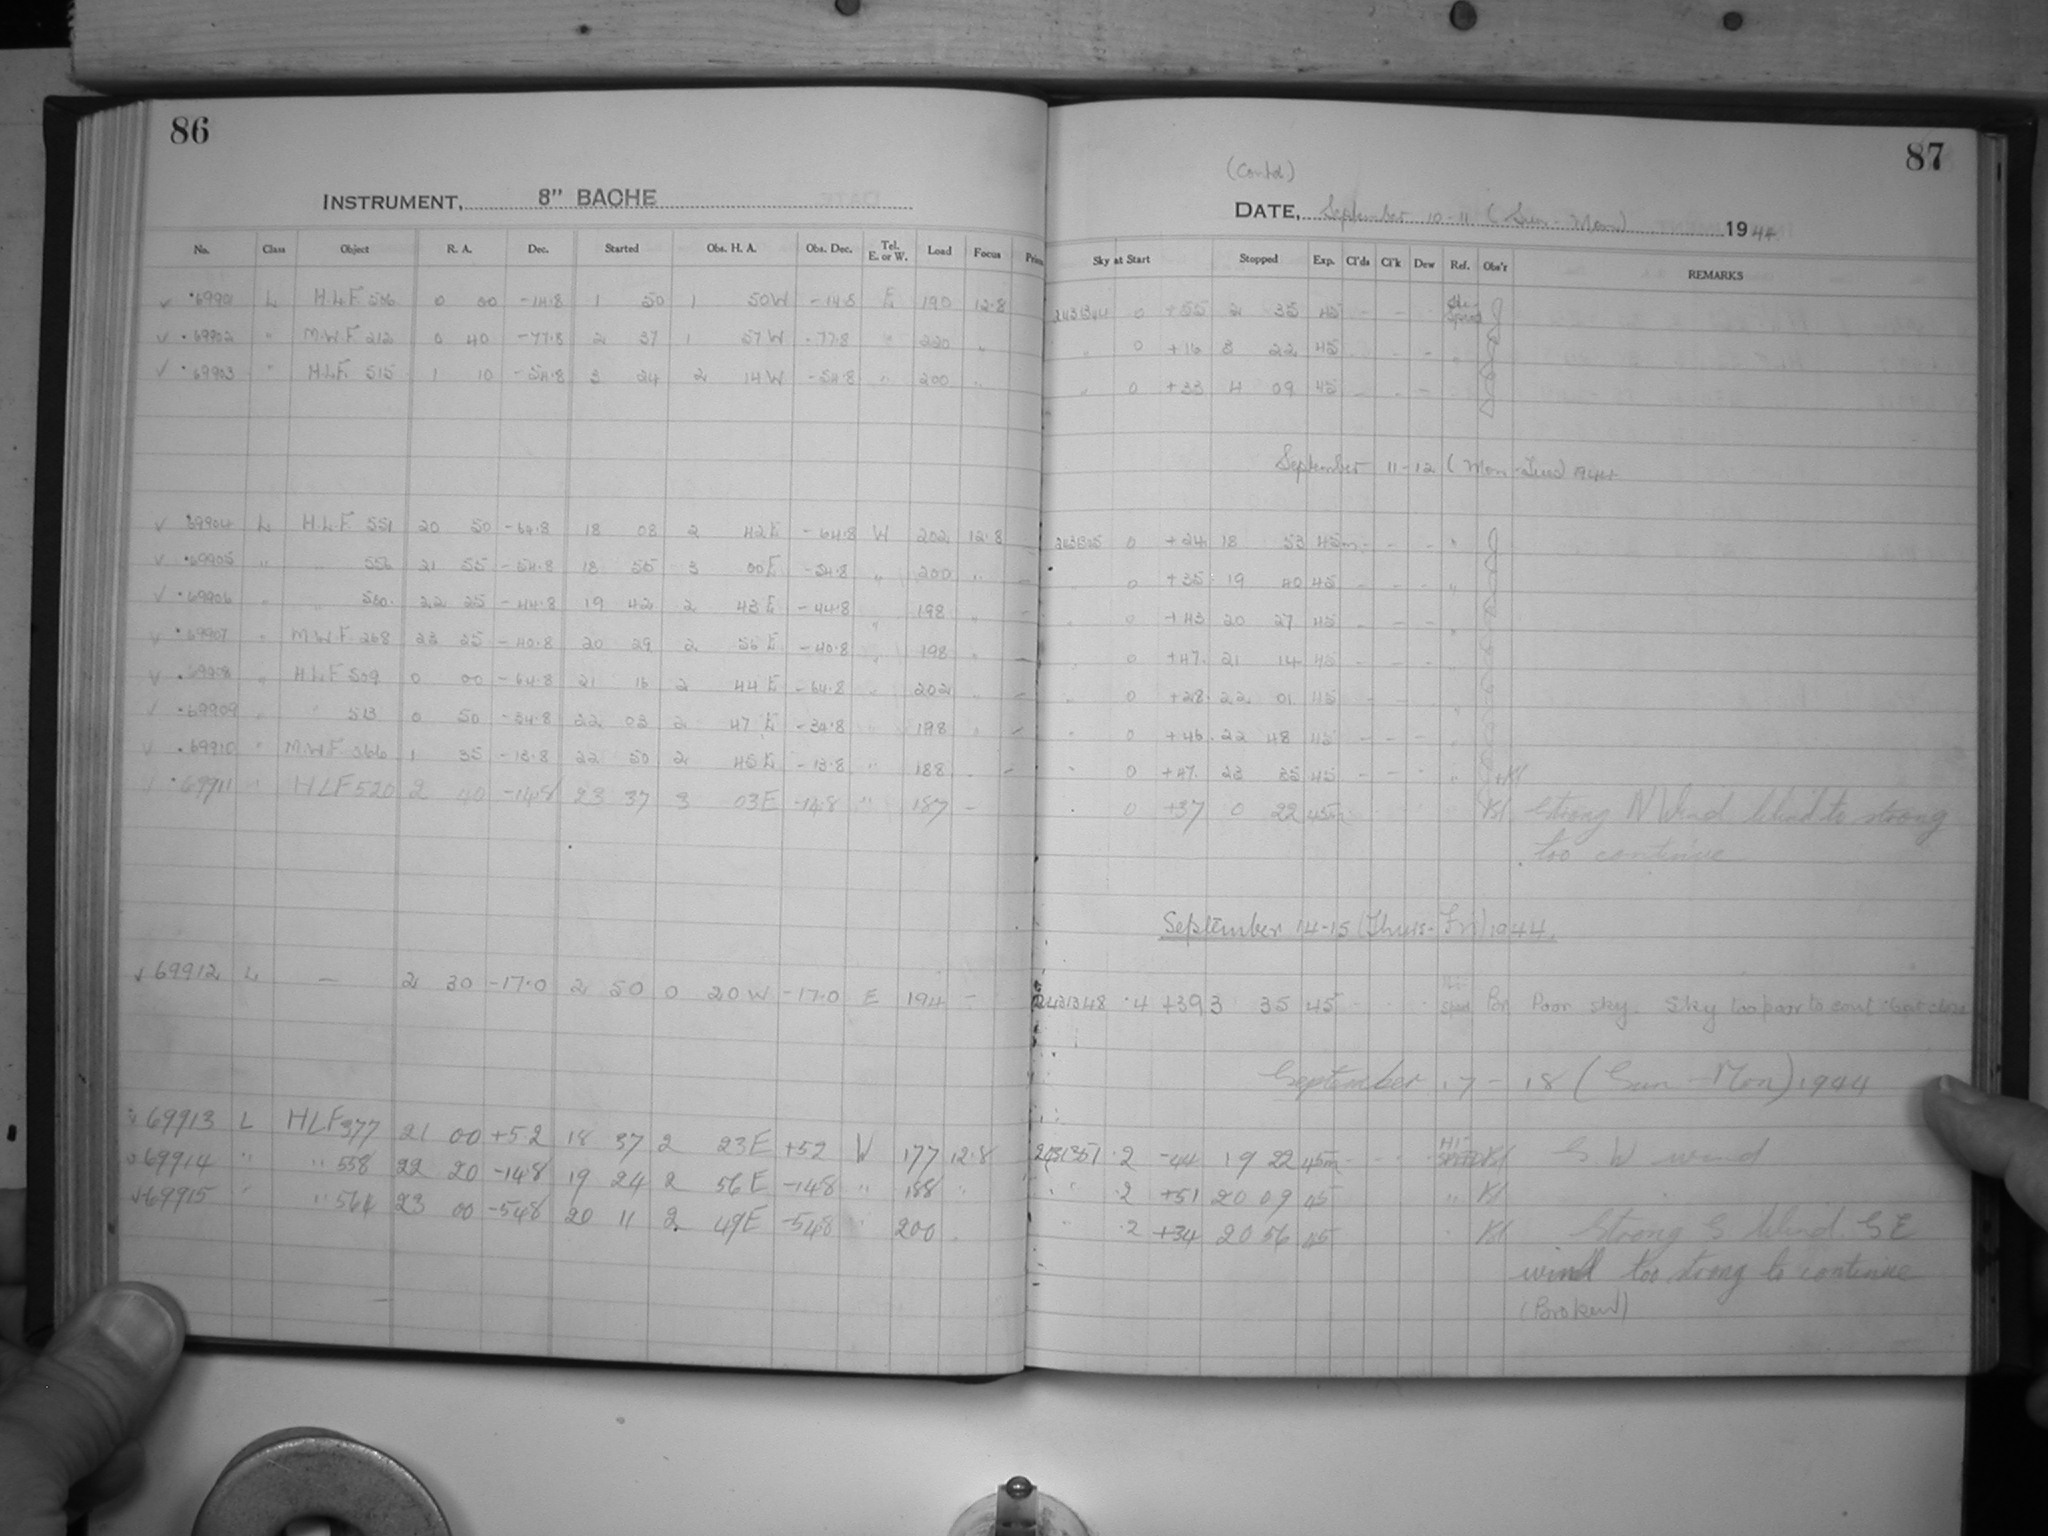 86
INSTRUMENT, 8" BACHE
No. Class Object R. A. Dec. Started Obs. H. A. Obs. Dec. Tel. E. or W. Load Focus
69901 L H.L.F 506 0 00 -14.8 1 50 1 50 W -14.8 E 190 12.8
69902 " M.W.F 212 0 40 -77.8 2 37 1 57 W -77.8 " 220 "
69903 " H.L.F. 515 1 10 -54.8 3 24 2 14 W -54.8 " 200 "
69904 L H.L.F. 551 20 50 -64.8 18 08 2 42 E -64.8 W 202 12.8
69905 " " 556 21 55 -54.8 18 55 3 00 E -54.8 " 200 "
69906 " " 560 22 25 -44.8 19 42 2 43 E -44.8 " 198 "
69907 " M.W.F. 268 23 25 -40.8 20 29 2 56 E -40.8 " 198 "
69908 " H.L.F 509 0 00 -64.8 21 16 2 44 E -64.8 " 202 "
69909 " " 513 0 50 -34.8 22 03 2 47 E -34.8 " 198 "
69910 " M.W.F. 266 1 35 -13.8 22 50 2 45 E -13.8 " 188 -
69911 " HLF 520 2 40 -14.8 23 37 3 03 E -14.8 " 187 -
69912 L — 2 30 -17.0 2 50 0 20 W -17.0 E 194 -
69913 L HLF 377 21 00 +5.2 18 37 2 23 E +5.2 W 177 12.8
69914 " " 558 22 20 -14.8 19 24 2 56 E -14.8 " 188 "
69915 " " 564 23 00 -54.8 20 11 2 49 E -54.8 " 200
87
(Contd.)
DATE, September 10-11 (Sun-Mon) 1944
Sky at Start Stopped Exp. Cl'ds Cl'k Dew Ref. Obs'r REMARKS
2431344 0 +55 2 35 45 - - J
" 0 +16 3 22 45 - "
" 0 +33 4 09 45 - - -
September 11-12 (Mon-Tues) 1944
0 +24 18 53 45m - - - " J
0 +35 19 40 45 - - - "
0 +43 20 27 45 - - - "
0 +47 21 14 45 - - - "
0 +28 22 01 45 - - "
0 +46 22 48 45 - - - "
0 +47 23 35 45 - - "
0 +37 0 22 45m Strong N Wind Wind to strong
too continue
September 14-15 (Thurs-Fri) 1944.
2431348 .4 +39 3 35 45 - - Poor sky. Sky too poor to cont.
September 17-18 (Sun-Mon) 1944
2431351 .2 -44 19 22 45m S W wind
" .2 +51 20 09 45 "
" .2 +34 20 56 45 Strong S Wind. S E
wind too strong to continue
(Broken)